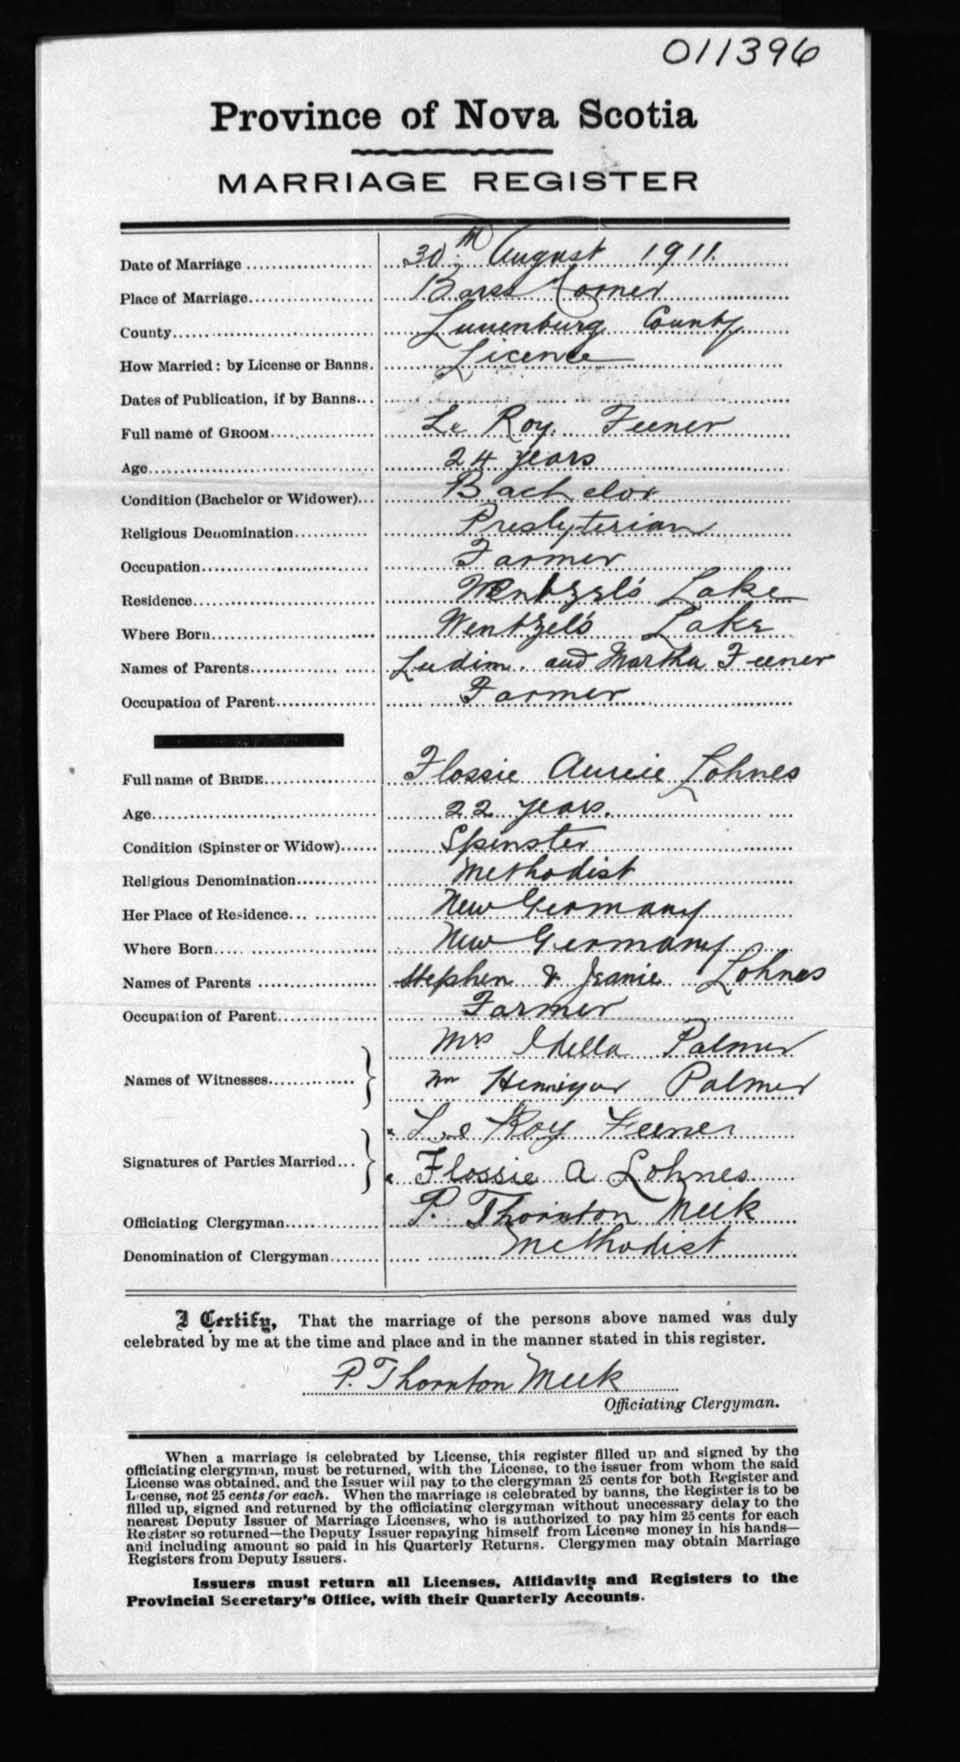 011396
Province of Nova Scotia
MARRIAGE REGISTER
Date of Marriage 30th August 1911.
Place of Marriage Barss Corner
County Lunenburg County
How Married: by License or Banns. Licence
Dates of Publication, if by Banns
Full name of GROOM Le Roy Feener
Age 24 years
Condition (Bachelor or Widower) Bachelor
Religious Denomination Presbyterian
Occupation Farmer
Residence Wentzel's Lake
Where Born Wentzel's Lake
Names of Parents Ludim. and Martha Feener
Occupation of Parent Farmer
Full name of BRIDE Flossie Lohnes
Age 22 years.
Condition (Spinster or Widow) Spinster
Religious Denomination Methodist
Her Place of Residence New Germany
Where Born New Germany
Names of Parents Stephen & Jeanie Lohnes
Occupation of Parent Farmer
Mrs Idella Palmer
Names of Witnesses Palmer
Le Roy Feener
Signatures of Parties Married Flossie A Lohnes
Officiating Clergyman P. Thornton Meek
Denomination of Clergyman Methodist
I Certify, That the marriage of the persons above named was duly
celebrated by me at the time and place and in the manner stated in this register.
P. Thornton Meek
Officiating Clergyman.
When a marriage is celebrated by License, this register filled up and signed by the
officiating clergyman, must be returned, with the License, to the issuer from whom the said
License was obtained, and the Issuer will pay to the clergyman 25 cents for both Register and
License, not 25 cents for each. When the marriage is celebrated by banns, the Register is to be
filled up, signed and returned by the officiating clergyman without unecessary delay to the
nearest Deputy Issuer of Marriage Licenses, who is authorized to pay him 25 cents for each
Register so returned—the Deputy Issuer repaying himself from License money in his hands—
and including amount so paid in his Quarterly Returns. Clergymen may obtain Marriage
Registers from Deputy Issuers.
Issuers must return all Licenses, Affidavits and Registers to the
Provincial Secretary's Office, with their Quarterly Accounts.